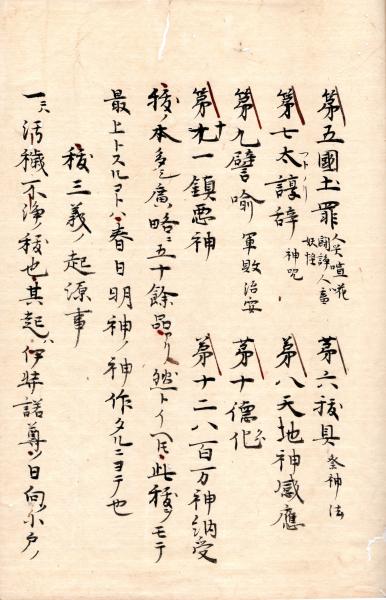 第五國土罪 人夫喧花 闘諍人畜 妖怪 第六祓具 祭神法
第七太諄辞 フトノリ 神呪 第八天地神感應
第九譬喩 軍敗治安 第十德化
第十一鎮悪神 第十二八百万神納受
祓ノ本多シ廣ク略ニ五十餘品アリ然トイヘトモ此祓ヲモテ
最上トスルコトハ春日明神ノ神作タルニヨテ也
祓三義ノ起源事
一六 活穢不浄ノ祓也其起ハ伊弉諾尊日向小戸ノ